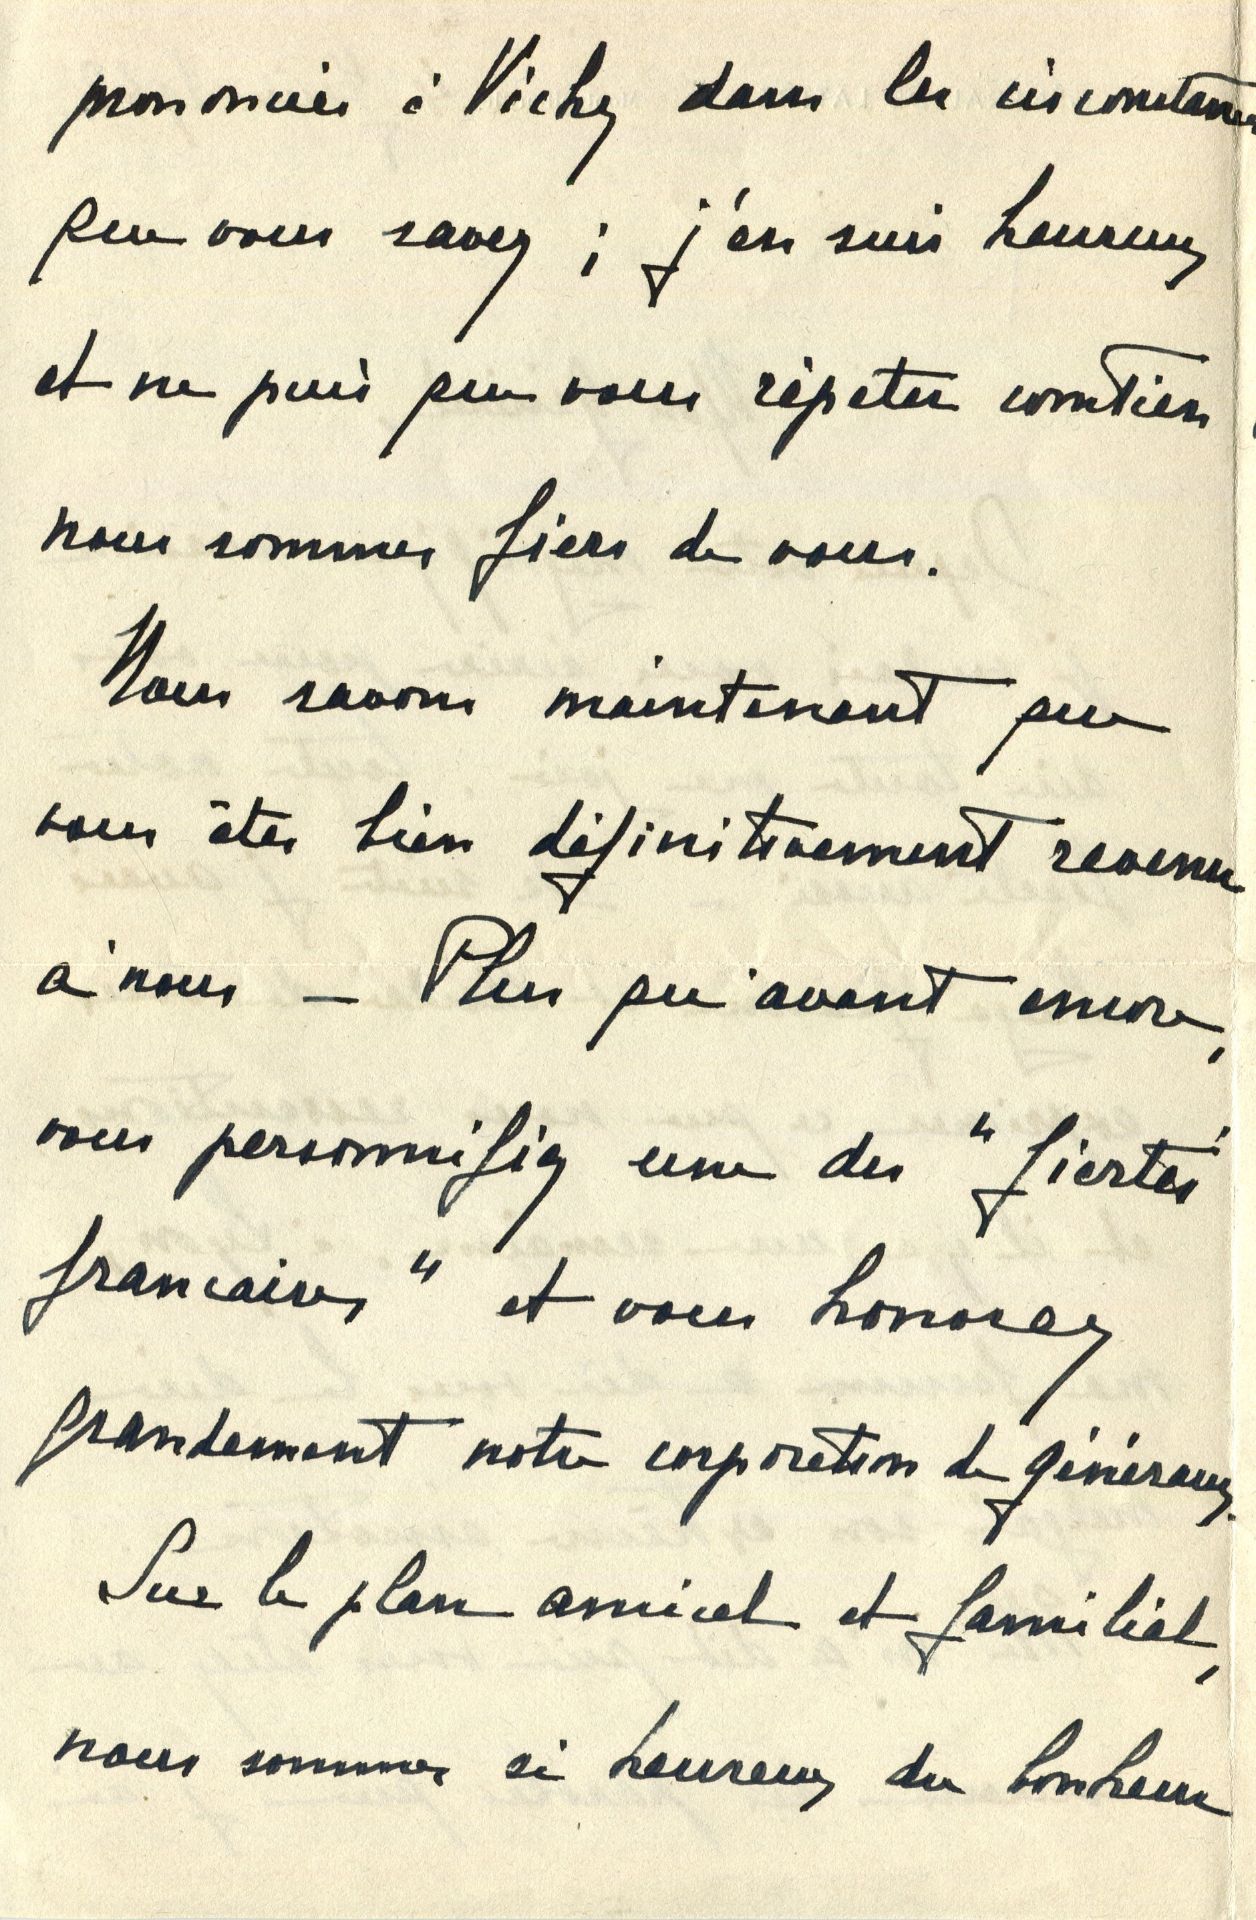 prononcées à Vichy dans les circonstances
que vous savez ; j'en suis heureux
et ne puis que vous répéter combien
nous sommes fiers de vous.
Nous savons maintenant que
vous êtes bien définitivement revenu
à nous — Plus qu'avant encore,
vous personnifiez une des " fiertés
françaises " et vous honorez
grandement notre corporation de généraux.
Sur le plan amical et familial,
nous sommes si heureux du bonheur